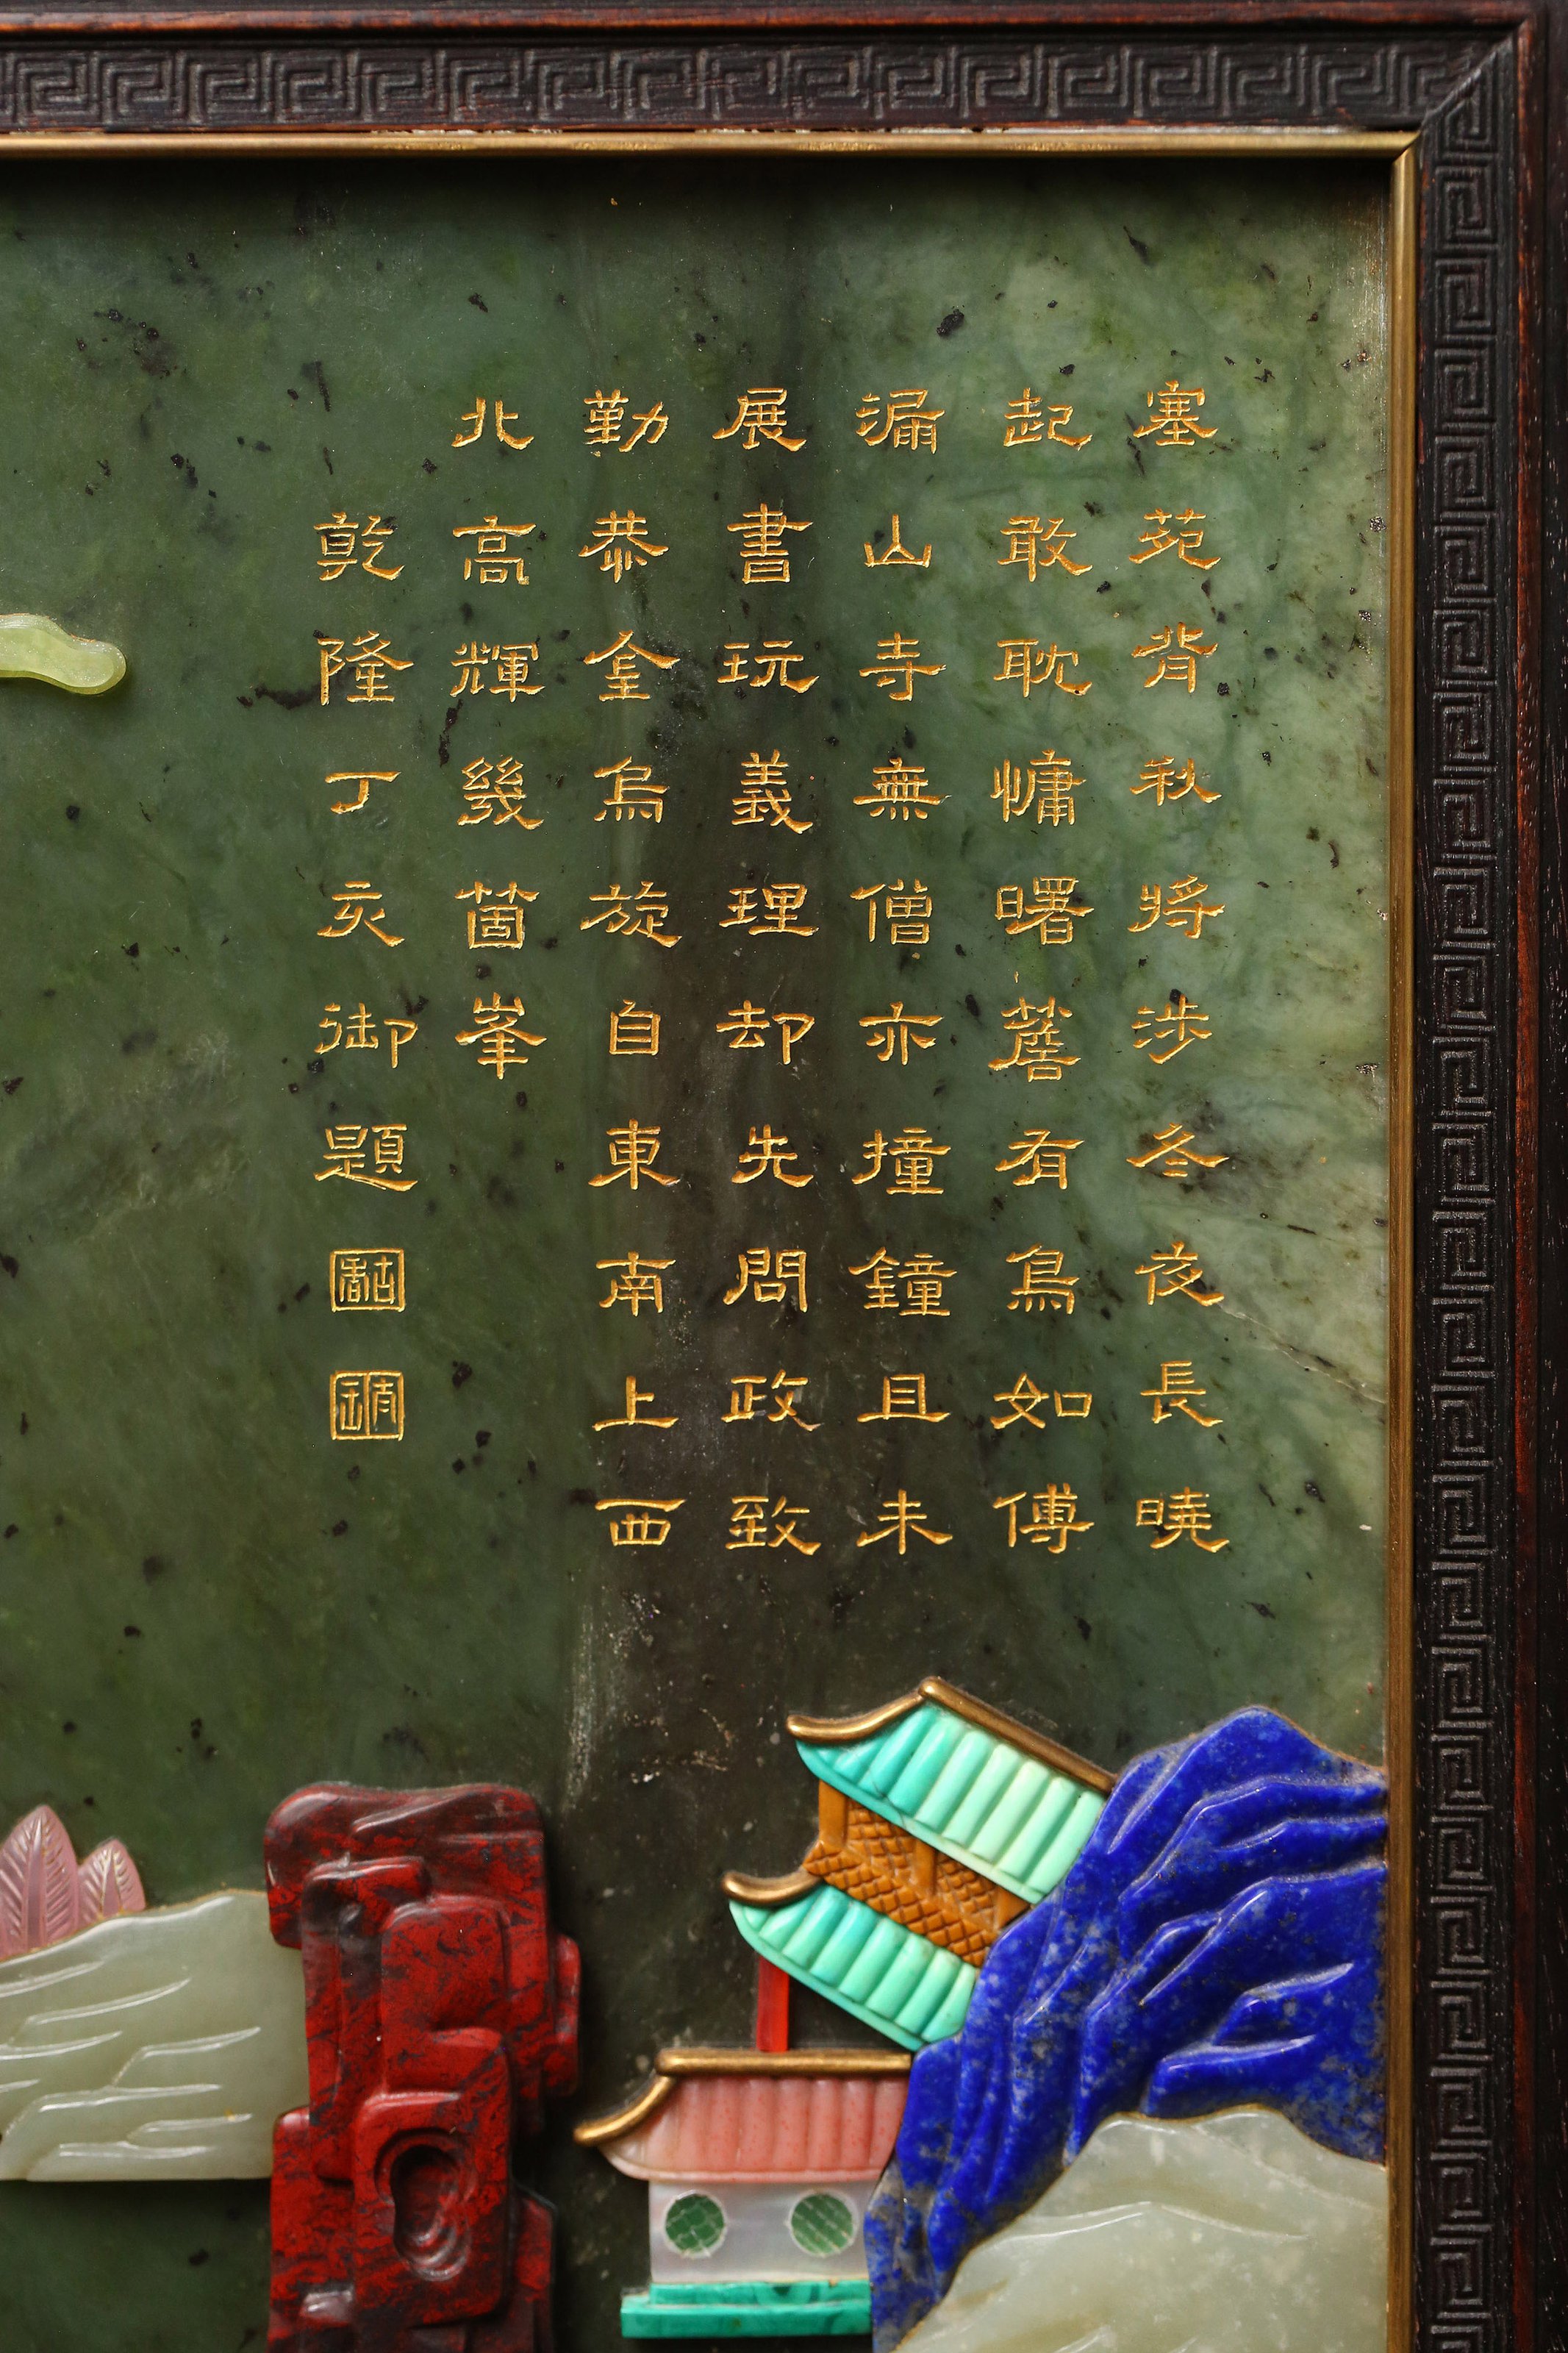 塞苑背秋將涉冬夜長曉
起敢耽慵曙簷有鳥如傳
漏山寺無僧亦撞鐘且未
展書玩義理却先問政致
勤恭金烏旋自東南上西
北高輝幾箇峯
乾隆丁亥御題
古香